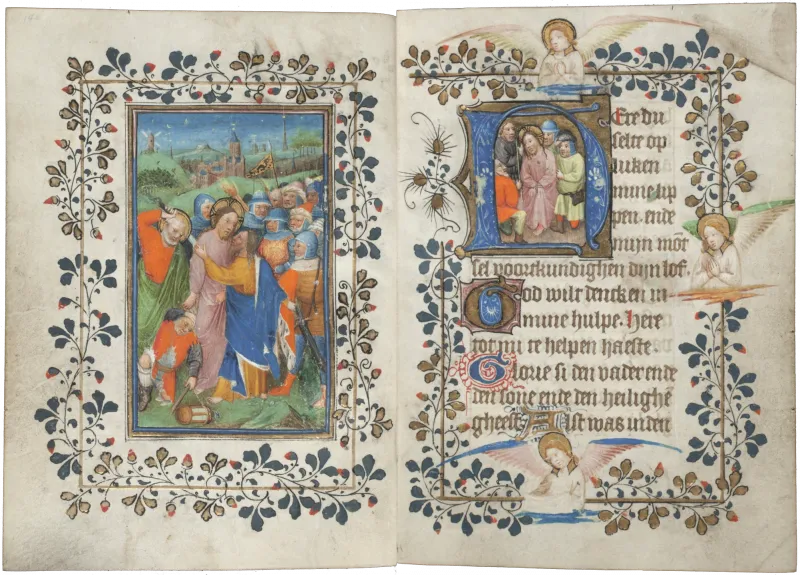 HEre du
selte op
luken
mine lip
pen. ende
mijn mōt
sel voortkundighen dijn lof.
God wilt dencken in
mine hulpe. Here
tot mi te helpen haeste
Glorie si den vader ende
den sone ende den heilighē
gheest Alst was in den